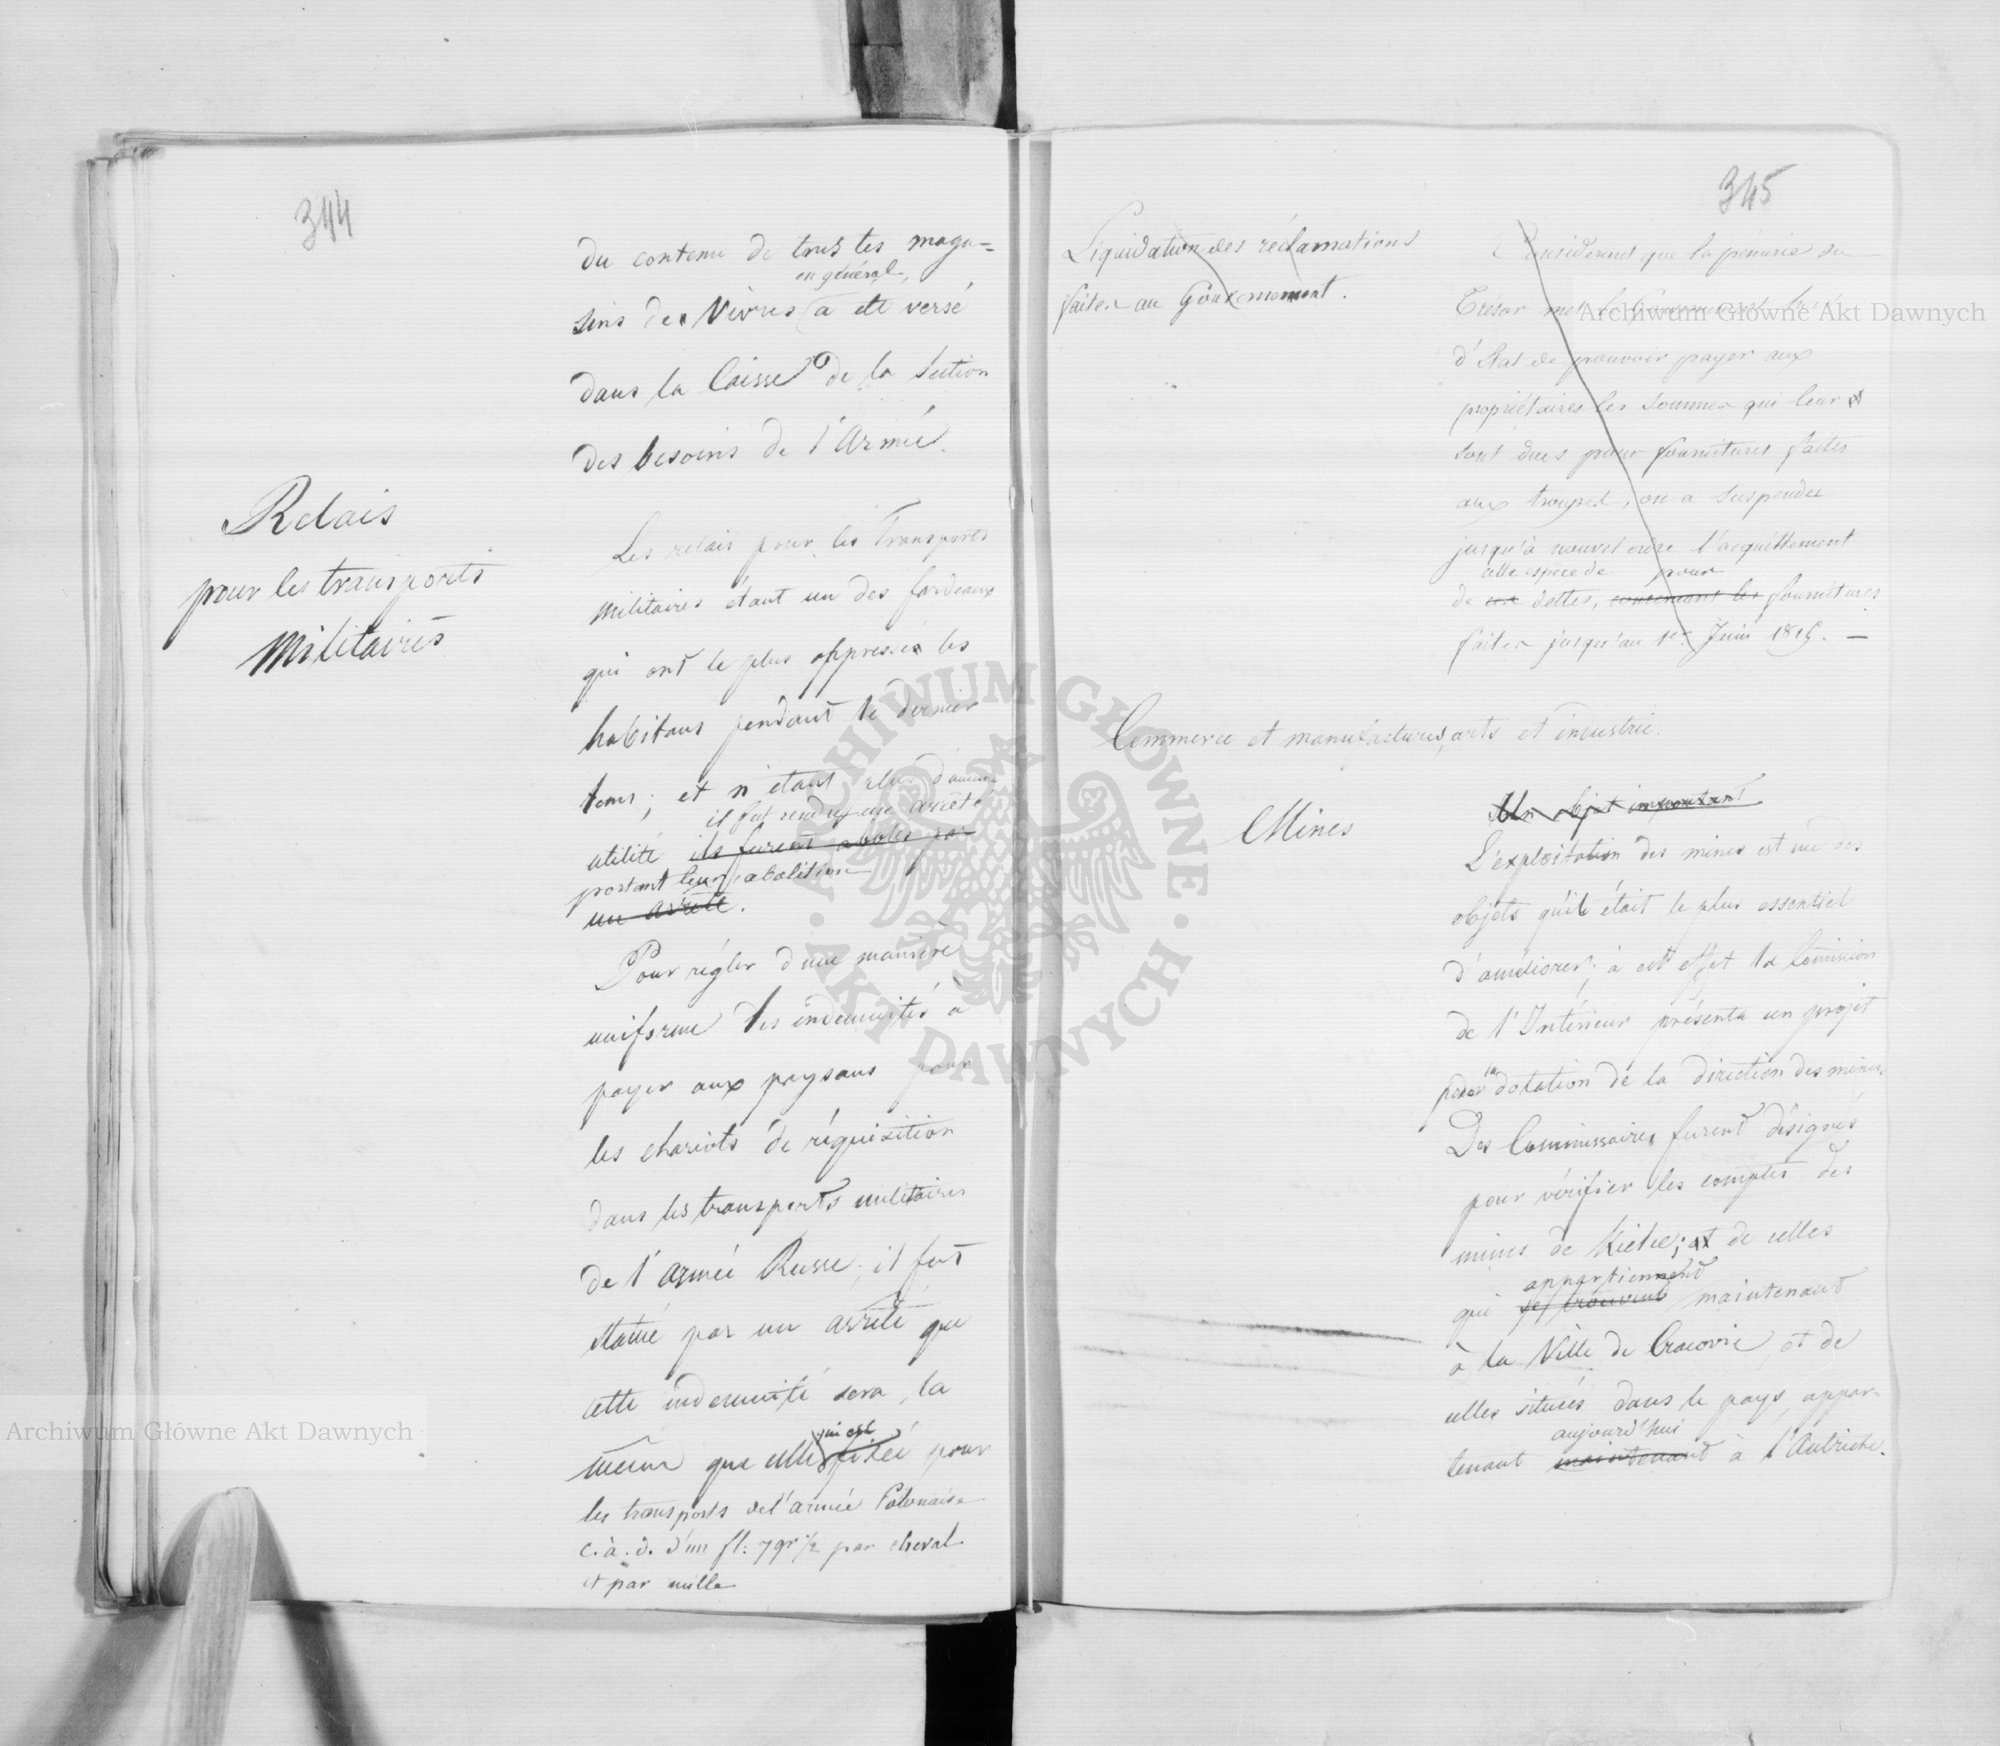 344
du contenu de tous les maga=
en général,
sins de Vivres a été versé
dans la Caisse de la Section
des besoins de l'Armée.
Relais
pour les transports
Militaires
Les relais pour les Transports
Militaires étant un des fardeaux
qui ont le plus oppressés les
habitans pendant le dernier
tems; et n'étant plus d'aucune
il fut rendu un arrêté
utilité ils furent abolis par
portant leur abolition
un arrêté.
Pour régler d'une manière
uniforme les indemnités à
payer aux paysans pour
les chariots de réquisition
dans les transports militaires
de l'armée Russe, il fut
statué par un arrêté que
cette indemnité sera, la
qui est
même que celle fixée pour
les transports de l'armée Polonaise
c. à. d. d'un fl: 7 gr ½ par cheval
et par mille
345
Liquidation des réclamations
faites au Gouvernement.
Considerant que la pénurie du
Trésor met le Gouvernement hors
d'état de pouvoir payer aux
propriétaires les sommes qui leur
sont dues pour fournitures faites
aux troupes, on a suspendu
jusqu'à nouvel ordre l'acquittement
cette espèce de pour
de dettes, concernant les fournitures
faites jusqu'au 1er Juin 1815. —
Commerce et manufactures, arts et industrie.
Mines
Un objet important
L'exploitation des mines est un des
objets qu'il était le plus essentiel
d'améliorer; à cet effet la Commission
de l'Intérieur présenta un projet
la
pour dotation de la direction des mines.
Des Commissaires furent désignés
pour vérifier les comptes des
mines de Kielce; et de celles
appartiennent
qui se trouvent maintenant
à la Ville de Cracovie, et de
celles situées dans le pays, appar=
aujourd'hui
tenant maintenant à l'Autriche.
Archiwum Główne Akt Dawnych
Archiwum Główne Akt Dawnych
ARCHIWUM GŁÓWNE · AKT DAWNYCH ·